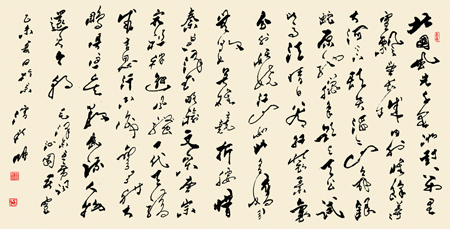 北国风光千里冰封万里
雪飘望长城内外惟余莽莽
大河上下顿失滔滔山舞银
蛇原驰蜡象欲与天公试
比高须晴日看红装素裹
分外妖娆江山如此多娇
引无数英雄竞折腰惜
秦皇汉武略输文采唐宗
宋祖稍逊风骚一代天骄
成吉思汗只识弯弓射大
雕俱往矣数风流人物
还看今朝 毛泽东主席词
沁园春雪
乙未春日